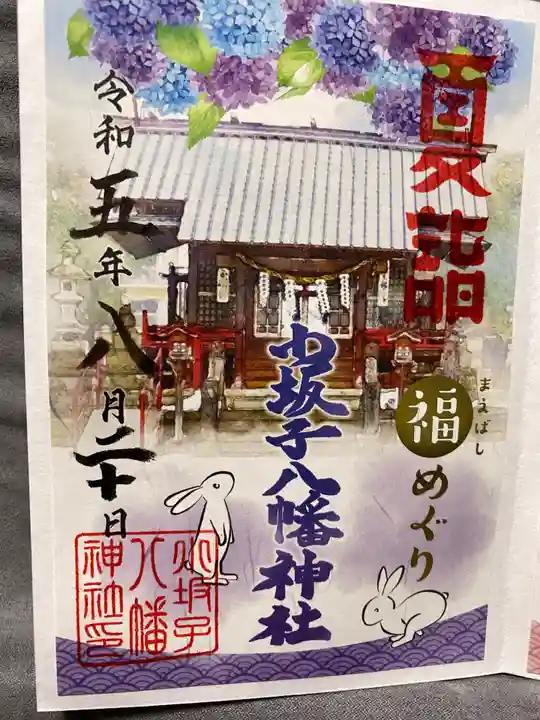 夏詣
まえばし
福めぐり
小坂子八幡神社
令和五年八月二十日
小坂子
八幡
神社印